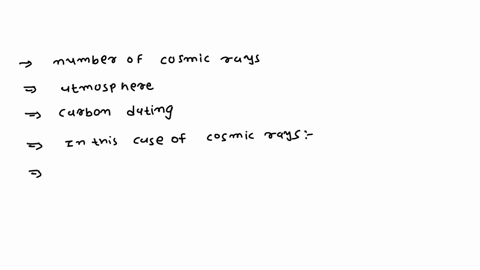 → number of cosmic rays
⇒ utmosphere
⇒ carbon dating
⇒ In this case of cosmic rays:-
⇒